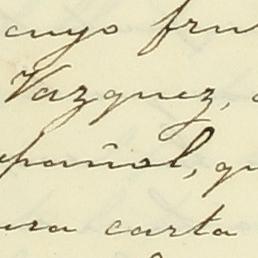 cuyo fru
Vazquez,
español, qu
ura carta